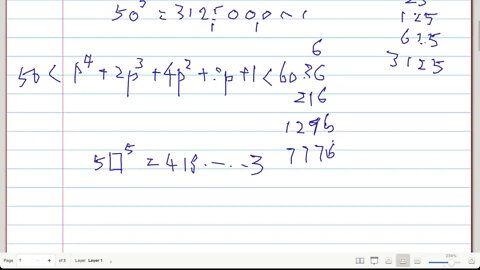 50^5 = 3125000...
25
125
625
3125
50 < p^4 + 2p^3 + 4p^2 + ...p + 1 < 60
6
36
216
1296
7776
5□^5 = 418......3
Page 1 of 3 Layer Layer 1